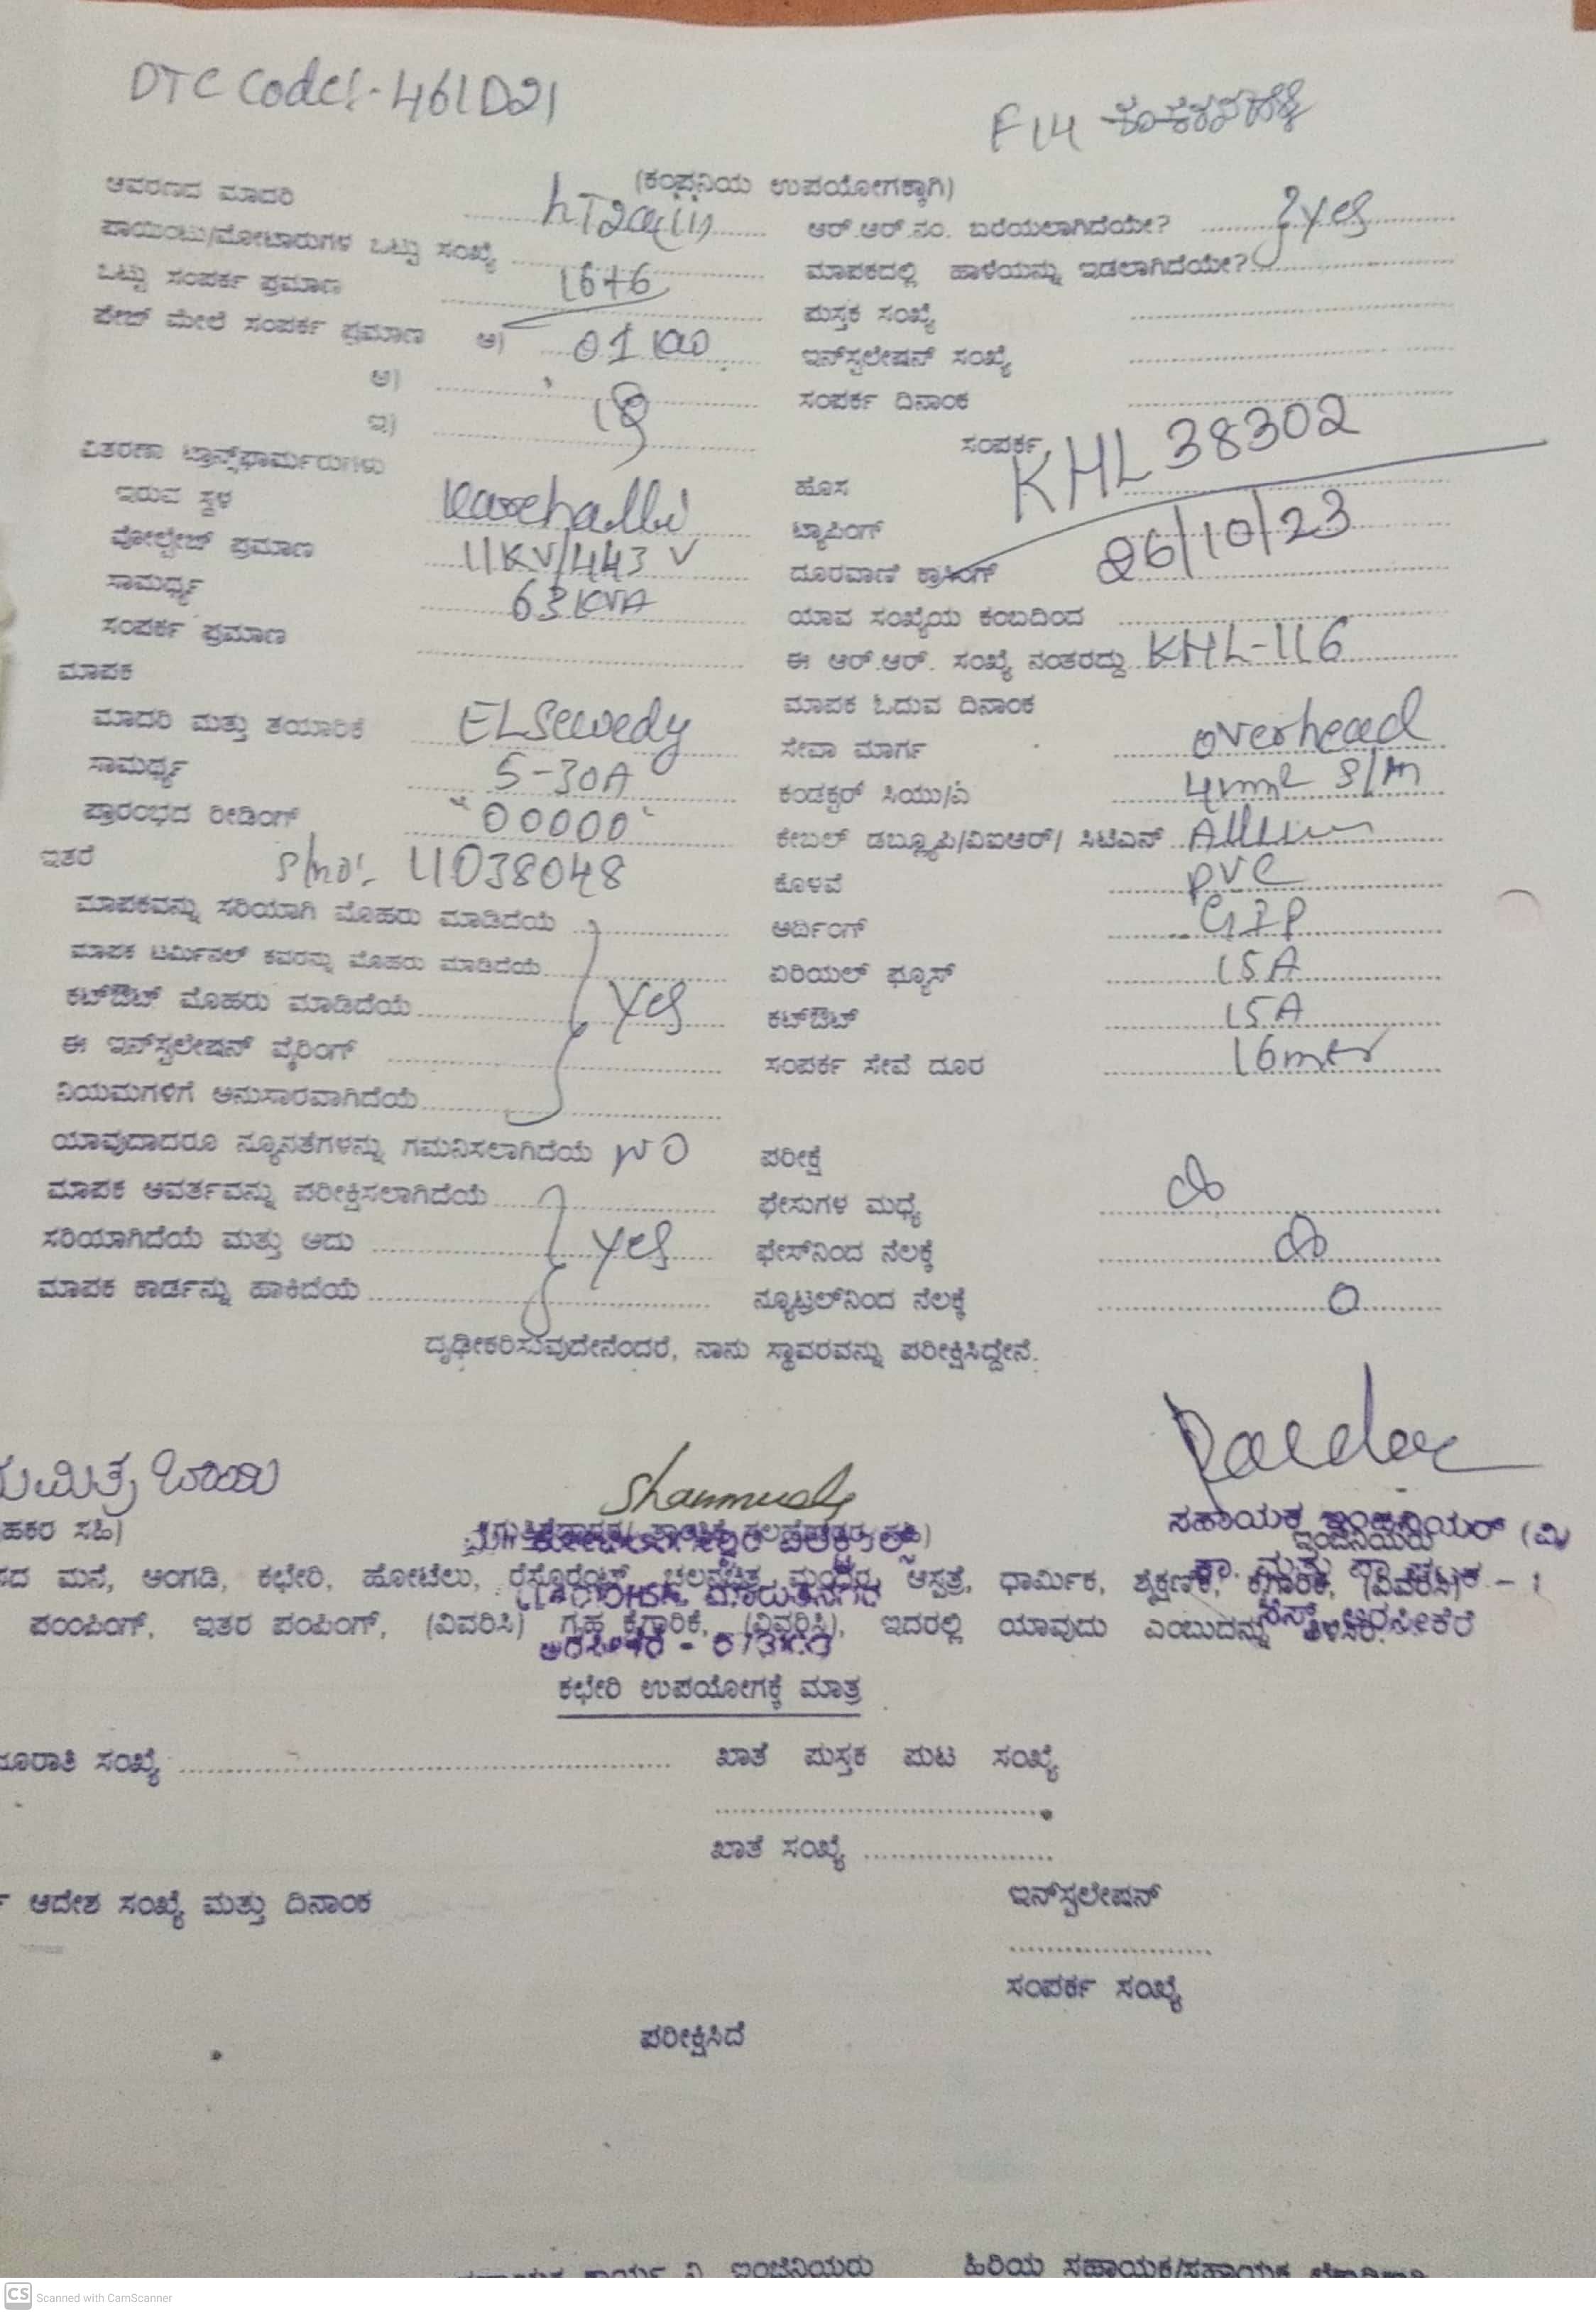 DTC Code:- 461D21
F14
(ಕಂಪನಿಯ ಉಪಯೋಗಕ್ಕಾಗಿ)
ಆವರಣದ ಮಾದರಿ
ಪಾಯಿಂಟು/ಮೋಟಾರುಗಳ ಒಟ್ಟು ಸಂಖ್ಯೆ
ಒಟ್ಟು ಸಂಪರ್ಕ ಪ್ರಮಾಣ 16+6
ಪೇಜ್ ಮೇಲೆ ಸಂಪರ್ಕ ಪ್ರಮಾಣ ಅ) 01 KW
ಆ)
ಇ)
ವಿತರಣಾ ಟ್ರಾನ್ಸ್‌ಫಾರ್ಮರುಗಳು
ಇರುವ ಸ್ಥಳ
ವೋಲ್ಟೇಜ್ ಪ್ರಮಾಣ 11KV/443 V
ಸಾಮರ್ಥ್ಯ 63KVA
ಸಂಪರ್ಕ ಪ್ರಮಾಣ
ಮಾಪಕ
ಮಾದರಿ ಮತ್ತು ತಯಾರಿಕೆ ELSewedy
ಸಾಮರ್ಥ್ಯ 5-30A
ಪ್ರಾರಂಭದ ರೀಡಿಂಗ್ "00000"
ಇತರೆ S/no:- 11038048
ಮಾಪಕವನ್ನು ಸರಿಯಾಗಿ ಮೊಹರು ಮಾಡಿದೆಯೆ
ಮಾಪಕ ಟರ್ಮಿನಲ್ ಕವರನ್ನು ಮೊಹರು ಮಾಡಿದೆಯೆ
ಕಟ್‌ಔಟ್ ಮೊಹರು ಮಾಡಿದೆಯೆ Yes
ಈ ಇನ್‌ಸ್ಟಲೇಷನ್ ವೈರಿಂಗ್
ನಿಯಮಗಳಿಗೆ ಅನುಸಾರವಾಗಿದೆಯೆ
ಯಾವುದಾದರೂ ನ್ಯೂನತೆಗಳನ್ನು ಗಮನಿಸಲಾಗಿದೆಯೆ NO
ಮಾಪಕ ಆವರ್ತವನ್ನು ಪರೀಕ್ಷಿಸಲಾಗಿದೆಯೆ
ಸರಿಯಾಗಿದೆಯೆ ಮತ್ತು ಅದು Yes
ಮಾಪಕ ಕಾರ್ಡನ್ನು ಹಾಕಿದೆಯೆ
ಆರ್.ಆರ್.ನಂ. ಬರೆಯಲಾಗಿದೆಯೇ? Yes
ಮಾಪಕದಲ್ಲಿ ಹಾಳೆಯನ್ನು ಇಡಲಾಗಿದೆಯೇ?
ಪುಸ್ತಕ ಸಂಖ್ಯೆ
ಇನ್‌ಸ್ಟಲೇಷನ್ ಸಂಖ್ಯೆ
ಸಂಪರ್ಕ ದಿನಾಂಕ
ಸಂಪರ್ಕ KHL 38302
ಹೊಸ
ಟ್ಯಾಪಿಂಗ್
ದೂರವಾಣಿ ಕ್ರಾಸಿಂಗ್ 26/10/23
ಯಾವ ಸಂಖ್ಯೆಯ ಕಂಬದಿಂದ
ಈ ಆರ್.ಆರ್. ಸಂಖ್ಯೆ ನಂತರದ್ದು KHL-116
ಮಾಪಕ ಓದುವ ದಿನಾಂಕ
ಸೇವಾ ಮಾರ್ಗ overhead
ಕಂಡಕ್ಟರ್ ಸಿಯು/ಎ 4mm2
ಕೇಬಲ್ ಡಬ್ಲ್ಯೂಪಿ/ವಿಐಆರ್/ ಸಿಟಿಎಸ್
ಕೊಳವೆ PVC
ಅರ್ಥಿಂಗ್ GIP
ಏರಿಯಲ್ ಫ್ಯೂಸ್ 15A
ಕಟ್‌ಔಟ್ 15A
ಸಂಪರ್ಕ ಸೇವೆ ದೂರ 16mtr
ಪರೀಕ್ಷೆ
ಫೇಸುಗಳ ಮಧ್ಯೆ ∞
ಫೇಸ್‌ನಿಂದ ನೆಲಕ್ಕೆ ∞
ನ್ಯೂಟ್ರಲ್‌ನಿಂದ ನೆಲಕ್ಕೆ 0
ದೃಢೀಕರಿಸುವುದೇನೆಂದರೆ, ನಾನು ಸ್ಥಾವರವನ್ನು ಪರೀಕ್ಷಿಸಿದ್ದೇನೆ.
ಸಹಾಯಕ ಇಂಜಿನಿಯರ್ (ವಿ)
ಹಕರ ಸಹಿ)
ಸದ ಮನೆ, ಅಂಗಡಿ, ಕಛೇರಿ, ಹೋಟೆಲು, ರೆಸ್ಟೊರೆಂಟ್, ಚಲನಚಿತ್ರ ಮಂದಿರ, ಆಸ್ಪತ್ರೆ, ಧಾರ್ಮಿಕ, ಶೈಕ್ಷಣಿಕ, ಕೈಗಾರಿಕೆ, (ವಿವರಿಸಿ)
ಪಂಪಿಂಗ್, ಇತರ ಪಂಪಿಂಗ್, (ವಿವರಿಸಿ) ಗೃಹ ಕೈಗಾರಿಕೆ, (ವಿವರಿಸಿ), ಇದರಲ್ಲಿ ಯಾವುದು ಎಂಬುದನ್ನು ತಿಳಿಸಿರಿ.
ಕಛೇರಿ ಉಪಯೋಗಕ್ಕೆ ಮಾತ್ರ
ಸಂಖ್ಯೆ
ಖಾತೆ ಪುಸ್ತಕ ಪುಟ ಸಂಖ್ಯೆ
ಖಾತೆ ಸಂಖ್ಯೆ
ಆದೇಶ ಸಂಖ್ಯೆ ಮತ್ತು ದಿನಾಂಕ
ಇನ್‌ಸ್ಟಲೇಷನ್
ಸಂಪರ್ಕ ಸಂಖ್ಯೆ
ಪರೀಕ್ಷಿಸಿದೆ
CS Scanned with CamScanner